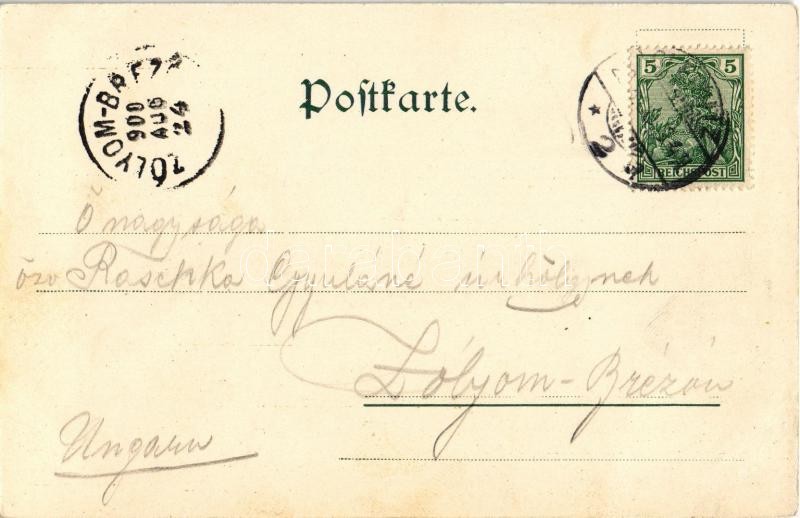 ZÓLYOM-BRÉZÓ
900
AUG
24
Postkarte.
5 5
REICHSPOST
* 2
Ő nagysága
özv Raschka Gyuláné úrhölgynek
Zólyom-Brézón
Ungarn